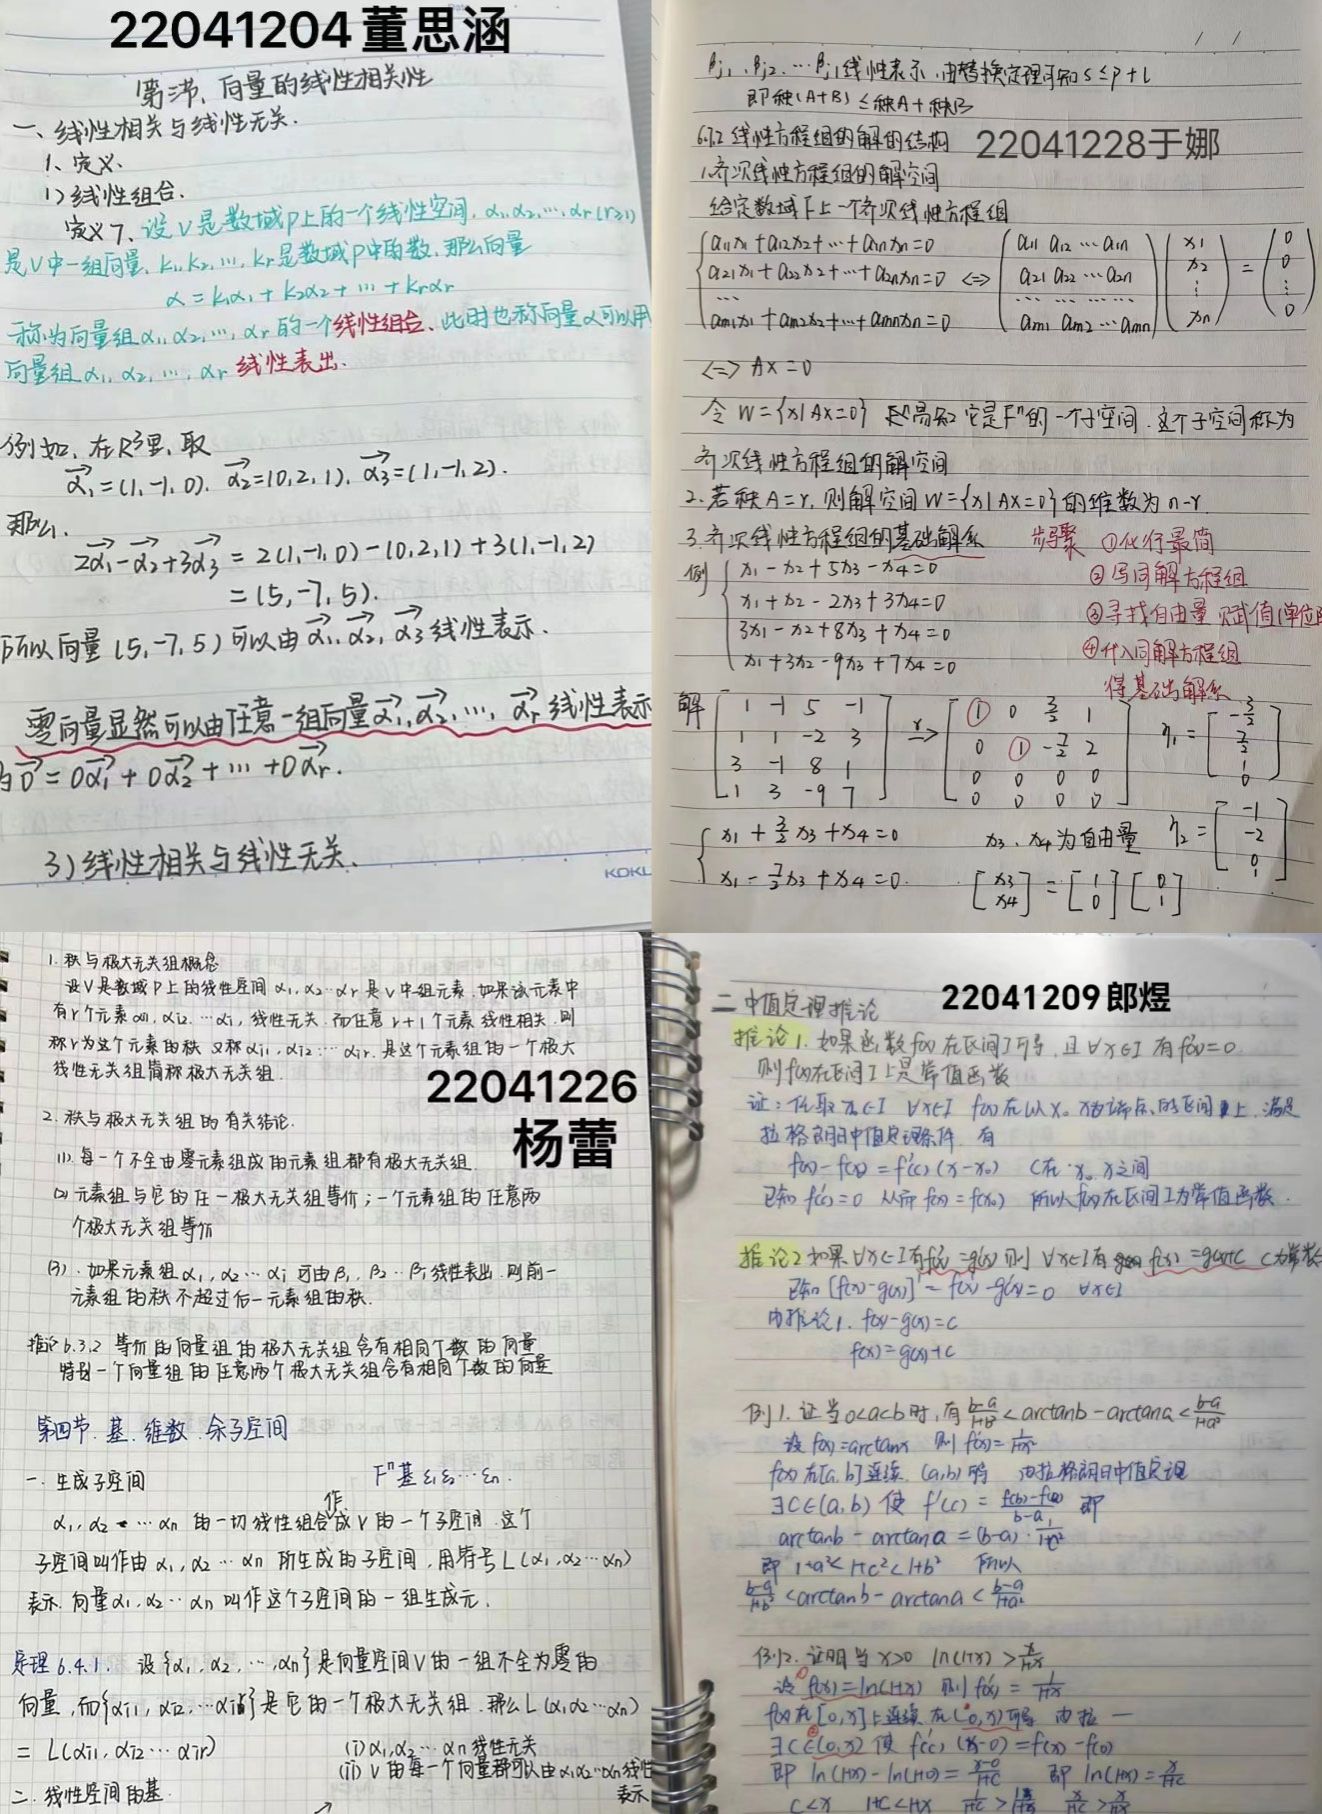 22041204董思涵
第三节、向量的线性相关性
一、线性相关与线性无关.
1、定义.
1)线性组合.
定义7、设V是数域P上的一个线性空间, α₁,α₂,…,αr(r≥1)
是V中一组向量, k₁,k₂,…,kr是数域P中的数,那么向量
α=k₁α₁+k₂α₂+…+krαr
称为向量组α₁,α₂,…,αr的一个线性组合、此时也称向量α可以用
向量组α₁,α₂,…,αr线性表出.
例如,在R³里,取
α₁=(1,-1,0). α₂=(0,2,1), α₃=(1,-1,2).
那么.
2α₁-α₂+3α₃=2(1,-1,0)-(0,2,1)+3(1,-1,2)
=(5,-7,5).
所以向量(5,-7,5)可以由α₁,α₂,α₃线性表示.
零向量显然可以由任意一组向量α₁,α₂,…,αr线性表示
0=0α₁+0α₂+…+0αr.
3)线性相关与线性无关.
βj1,βj2,…βjl线性表示,由替换定理可知s≤p+l
即秩(A+B)≤秩A+秩B
6.7.2线性方程组的解的结构
22041228于娜
1.齐次线性方程组的解空间
给定数域F上一个齐次线性方程组
a11x1+a12x2+…+a1nxn=0
a21x1+a22x2+…+a2nxn=0 <=>
…
am1x1+am2x2+…+amnxn=0
a11 a12 … a1n x1 0
a21 a22 … a2n x2 = 0
… … … … ⋮ ⋮
am1 am2 … amn xn 0
<=> AX=0
令W={x|AX=0} 易知它是Fⁿ的一个子空间.这个子空间称为
齐次线性方程组的解空间
2.若秩A=r,则解空间W={x|AX=0}的维数为n-r.
3.齐次线性方程组的基础解系
步骤 ①化行最简
②写同解方程组
③寻找自由量 赋值(单位
④代入同解方程组
得基础解系
例 x1-x2+5x3-x4=0
x1+x2-2x3+3x4=0
3x1-x2+8x3+x4=0
x1+3x2-9x3+7x4=0
解 1 -1 5 -1 r→ 1 0 3/2 1 η1= -3/2
1 1 -2 3 0 1 -7/2 2 7/2
3 -1 8 1 0 0 0 0 1
1 3 -9 7 0 0 0 0 0
x1+3/2x3+x4=0 x3、x4为自由量 η2= -1 -2 0 1
x1-7/2x3+x4=0. [x3 x4]=[1 0][0 1]
1.秩与极大无关组概念
设V是数域P上的线性空间α₁,α₂…αr是V中一组元素.如果该元素中
有r个元素αi1,αi2,…αi,线性无关.而任意r+1个元素线性相关.则
称r为这个元素的秩 又称αi1,αi2…αir.是这个元素组的一个极大
线性无关组简称极大无关组.
22041226
杨蕾
2.秩与极大无关组的有关结论.
(1).每一个不全由零元素组成的元素组都有极大无关组.
(2)元素组与它的任一极大无关组等价;一个元素组的任意两
个极大无关组等价
(3).如果元素组α₁,α₂…αi可由β₁,β₂…βj线性表出.则前一
元素组的秩不超过后一元素组的秩.
推论6.3.2 等价的向量组的极大无关组含有相同个数的向量
特别一个向量组的任意两个极大无关组含有相同个数的向量
第四节.基.维数.余子空间
一.生成子空间 Fⁿ基ε₁ε₂…εn.
作
α₁,α₂…αn的一切线性组合成V的一个子空间.这个
子空间叫作由α₁,α₂…αn所生成的子空间,用符号L(α₁,α₂…αn)
表示.向量α₁,α₂…αn叫作这个子空间的一组生成元.
定理6.4.1. 设{α₁,α₂,…,αn}是向量空间V的一组不全为零的
向量,而{αi1,αi2,…αir}是它的一个极大无关组.那么L(α₁α₂…αn)
=L(αi1,αi2…αir) (i)α₁,α₂…αn线性无关
(ii)V的每一个向量都可以由α₁α₂…αn线性
二.线性空间的基. 表示
22041209郎煜
二 中值定理推论
推论1.如果函数f(x)在区间I可导,且∀x∈I有f'(x)=0.
则f(x)在区间I上是常值函数
证:任取x₀∈I ∀x∈I f(x)在以x₀ x为端点的区间上.满足
拉格朗日中值定理条件 有
f(x)-f(x₀)=f'(c)(x-x₀) C在x₀ x之间
已知f'(c)=0 从而f(x)=f(x₀) 所以f(x)在区间I为常值函数.
推论2 如果∀x∈I有f'(x)=g'(x)则 ∀x∈I有 f(x)=g(x)+C C为常数
已知[f(x)-g(x)]'=f'(x)-g'(x)=0 ∀x∈I
由推论1. f(x)-g(x)=C
f(x)=g(x)+C
例1.证当0<a<b时,有(b-a)/(1+b²)<arctanb-arctana<(b-a)/(1+a²)
设f(x)=arctanx 则f'(x)=1/(1+x²)
f(x)在[a,b]连续.(a,b)可导 由拉格朗日中值定理
∃C∈(a,b) 使f'(c)=(f(b)-f(a))/(b-a) 即
arctanb-arctana=(b-a)·1/(1+c²)
即 1+a²<1+c²<1+b² 所以
(b-a)/(1+b²)<arctanb-arctana<(b-a)/(1+a²)
例2.证明当x>0 ln(1+x)>x/(1+x)
设f(x)=ln(1+x) 则f'(x)=1/(1+x)
f(x)在[0,x]上连续.在(0,x)可导 由拉一
∃C∈(0,x)使f'(c)(x-0)=f(x)-f(0)
即ln(1+x)-ln(1+0)=(x-0)/(1+c) 即ln(1+x)=x/(1+c)
C<x 1+C<1+x 1/(1+c)>1/(1+x) x/(1+c)>x/(1+x)